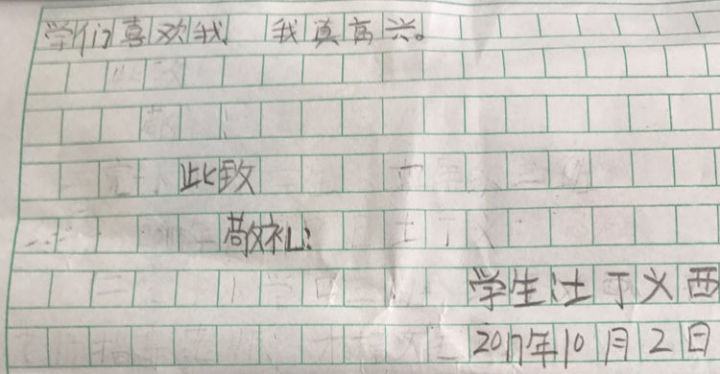 学们喜欢我 我真高兴。
此致
敬礼:
学生汢丁义西
2017年10月2日